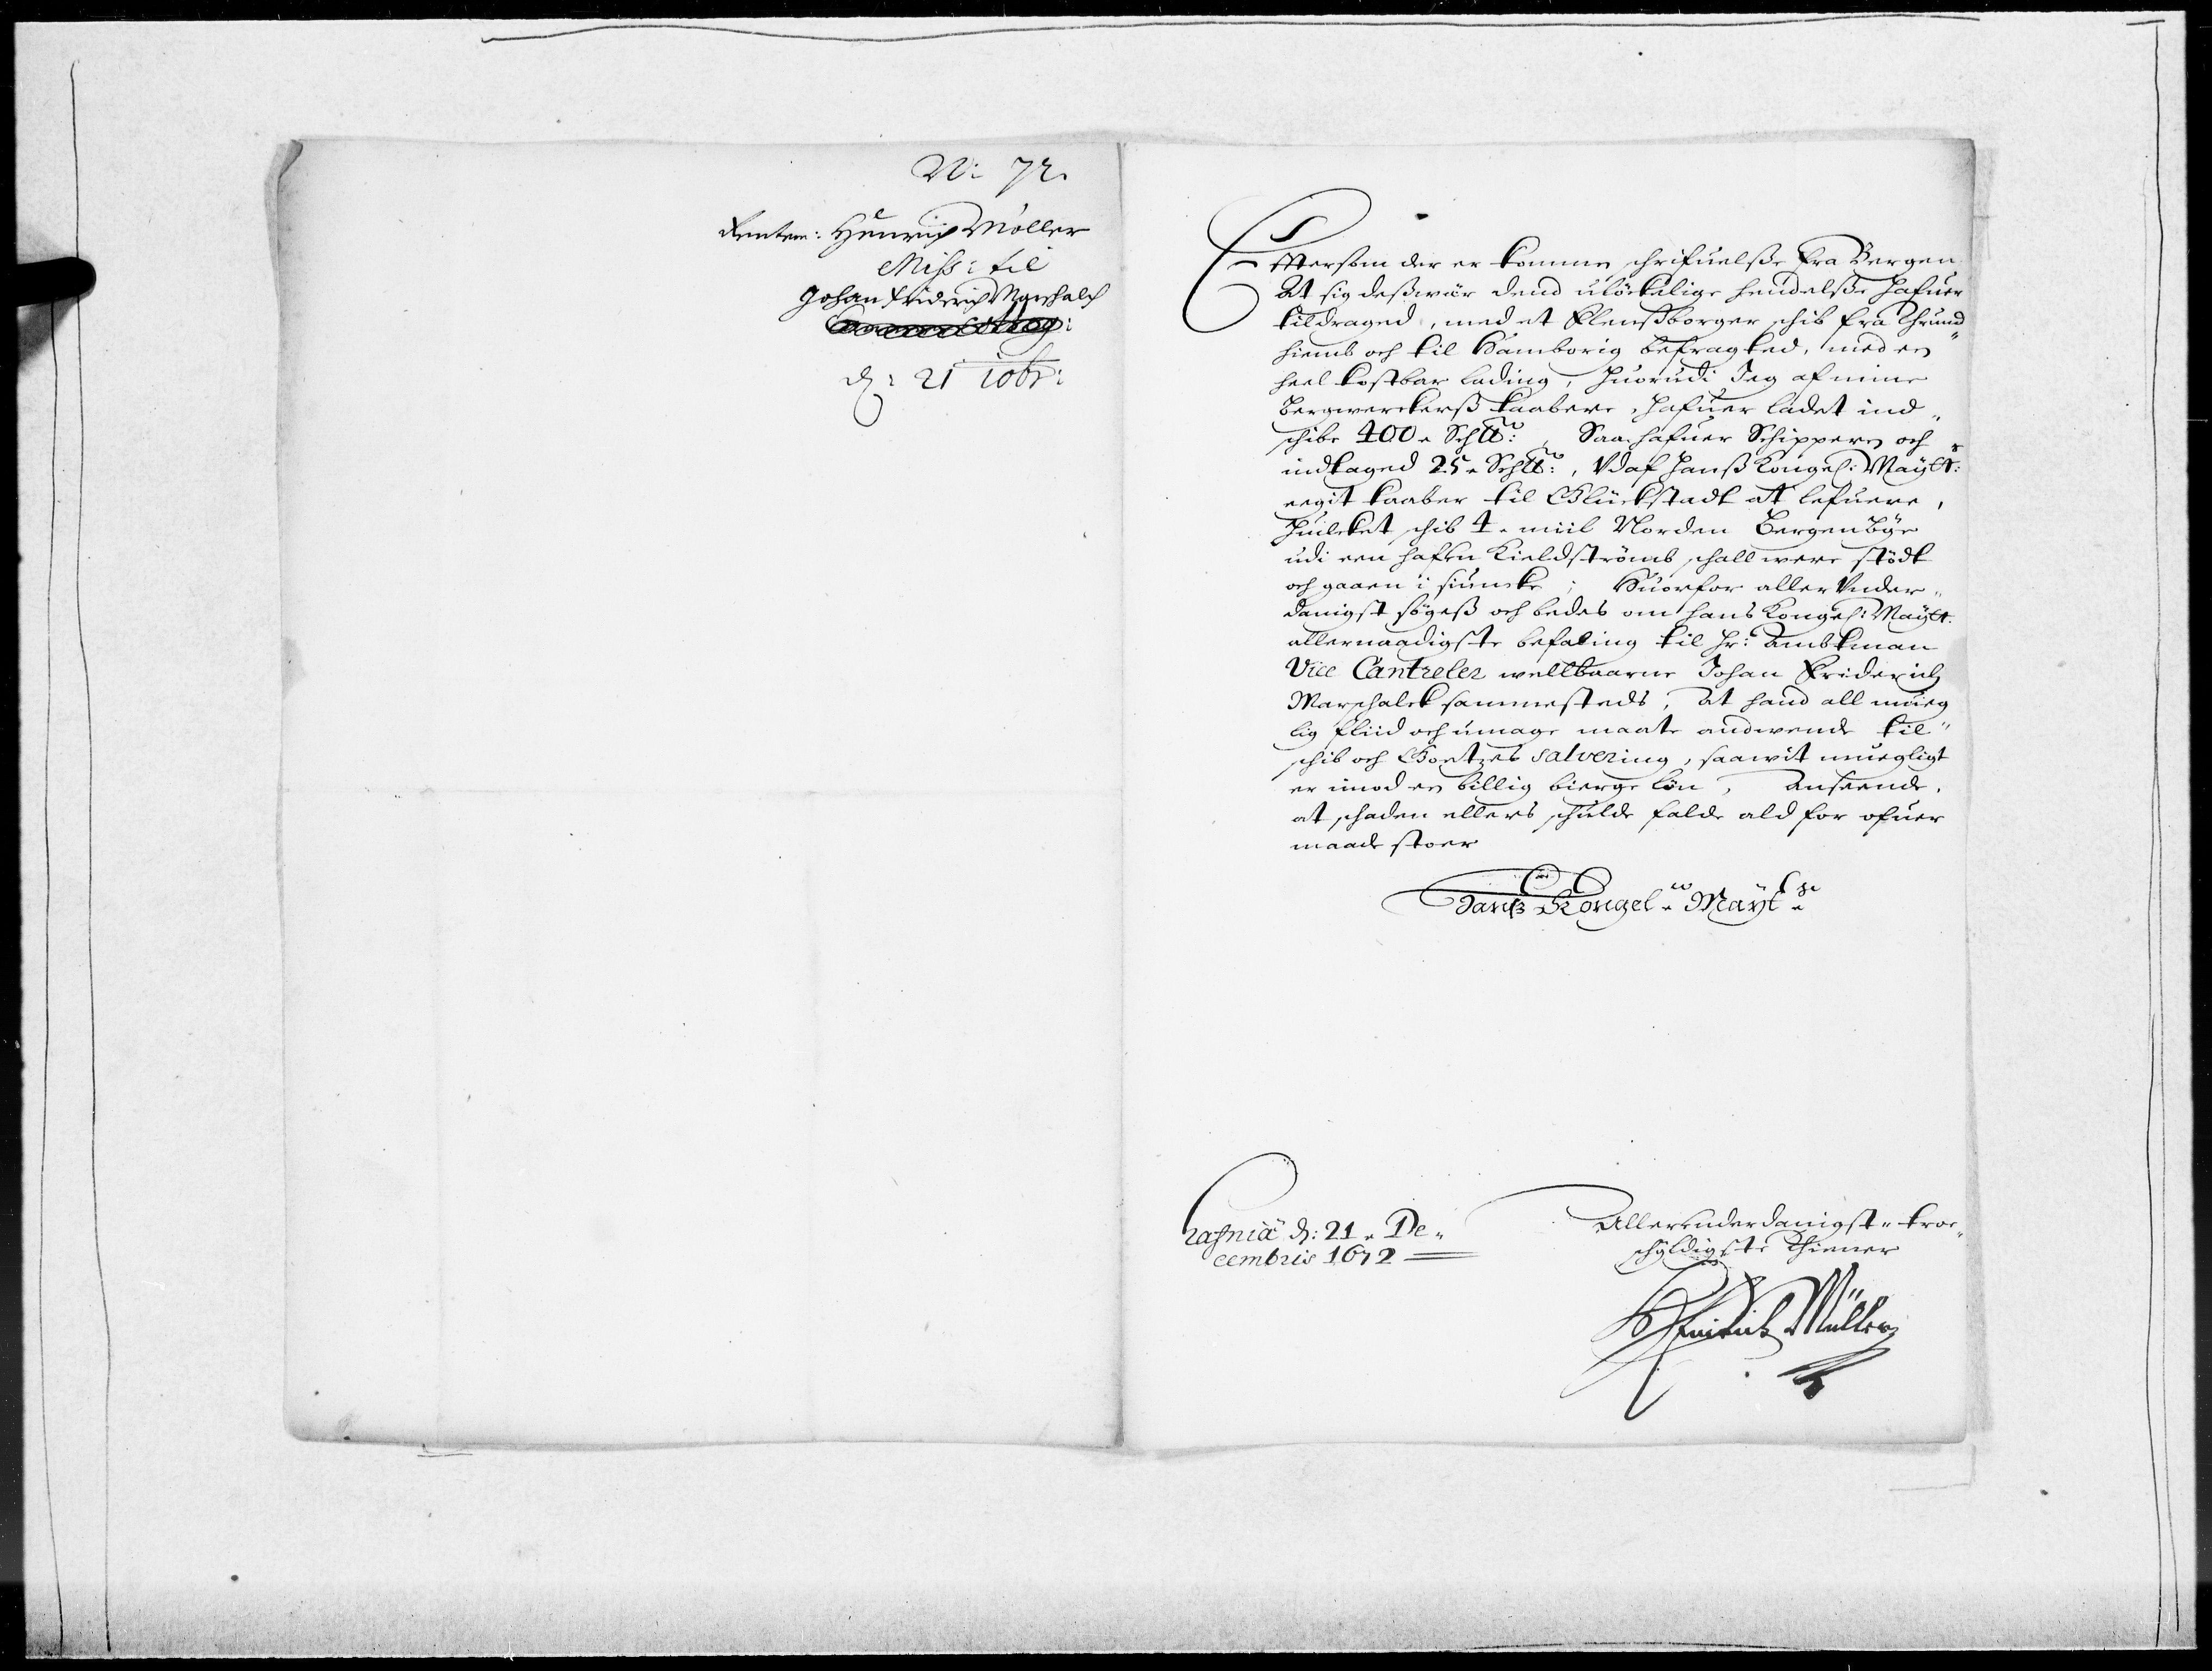 N: 72.
Rentem: Henrich Møller
Miss: til
Johan Friderich Marshalch
d: 21 10br:
Eftersom der er kommen schrifuelsse fra Bergen
At sig dessværr dend ulöckelige hendelsse hafuer
tildraged, med et Flenssborger schib fra Thrund„
hiemb och til Hamborig befragted, med en
heel kostbar lading, huorudi Jeg af mine
bergverckerss kaabere hafuer ladet ind„
schibe 400 Sch℔: Saa hafuer Schipperen och
indtaged 25 Sch℔:, Vdaf hanss Kongel: Maytz:
eegit kaaber til Glückstadt at lefuere,
huilcket schib 4 miil Norden Bergen bye
udi een hafn Kieldströmb schall were stödt
och gaaen i siuncke; Huorfor aller Vnder„
danigst söges och bedes om hans Kongel: Maytz
allernaadigste befaling til Hr: Ambtman
Vice Cantzeler wellbaarne Johan Friderich
Marschalck sammesteds, At hand all mueg„
lig fliid och umage maate andwende til
schib och Goetzes salvering, saawit muegligt
er imod en billig bierge lön, Anseende,
at schaden ellers schulde falde ald for ofuer
maade stoer
Hanss Kongel Maytz
Hafniæ d: 21 De„
cembris 1672
Allerunderdanigst troe„
schyldigste Thiener
Henrich Müller